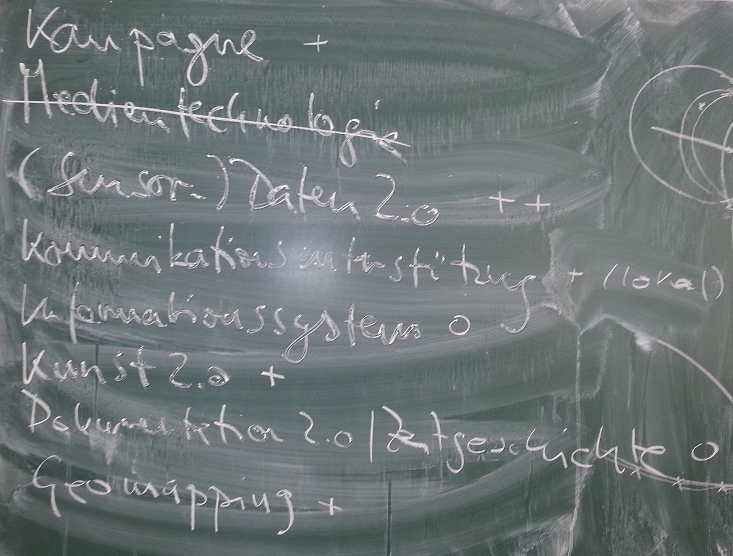 Kampagne +
Medientechnologie
(Sensor-) Daten 2.0 ++
Kommunikationsunterstützung + (lokal)
Informationssystem o
Kunst 2.0 +
Dokumentation 2.0 / Zeitgeschichte o
Geomapping +